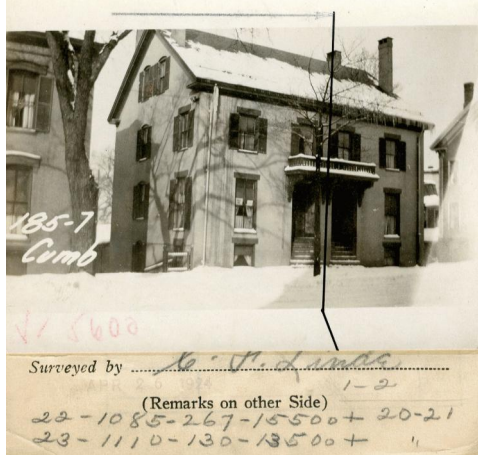 185-7
Cumb
Surveyed by
APR 26 1924
1-2
(Remarks on other Side)
22-1085-267-15500+ 20-21
23-1110-130-13500+ "